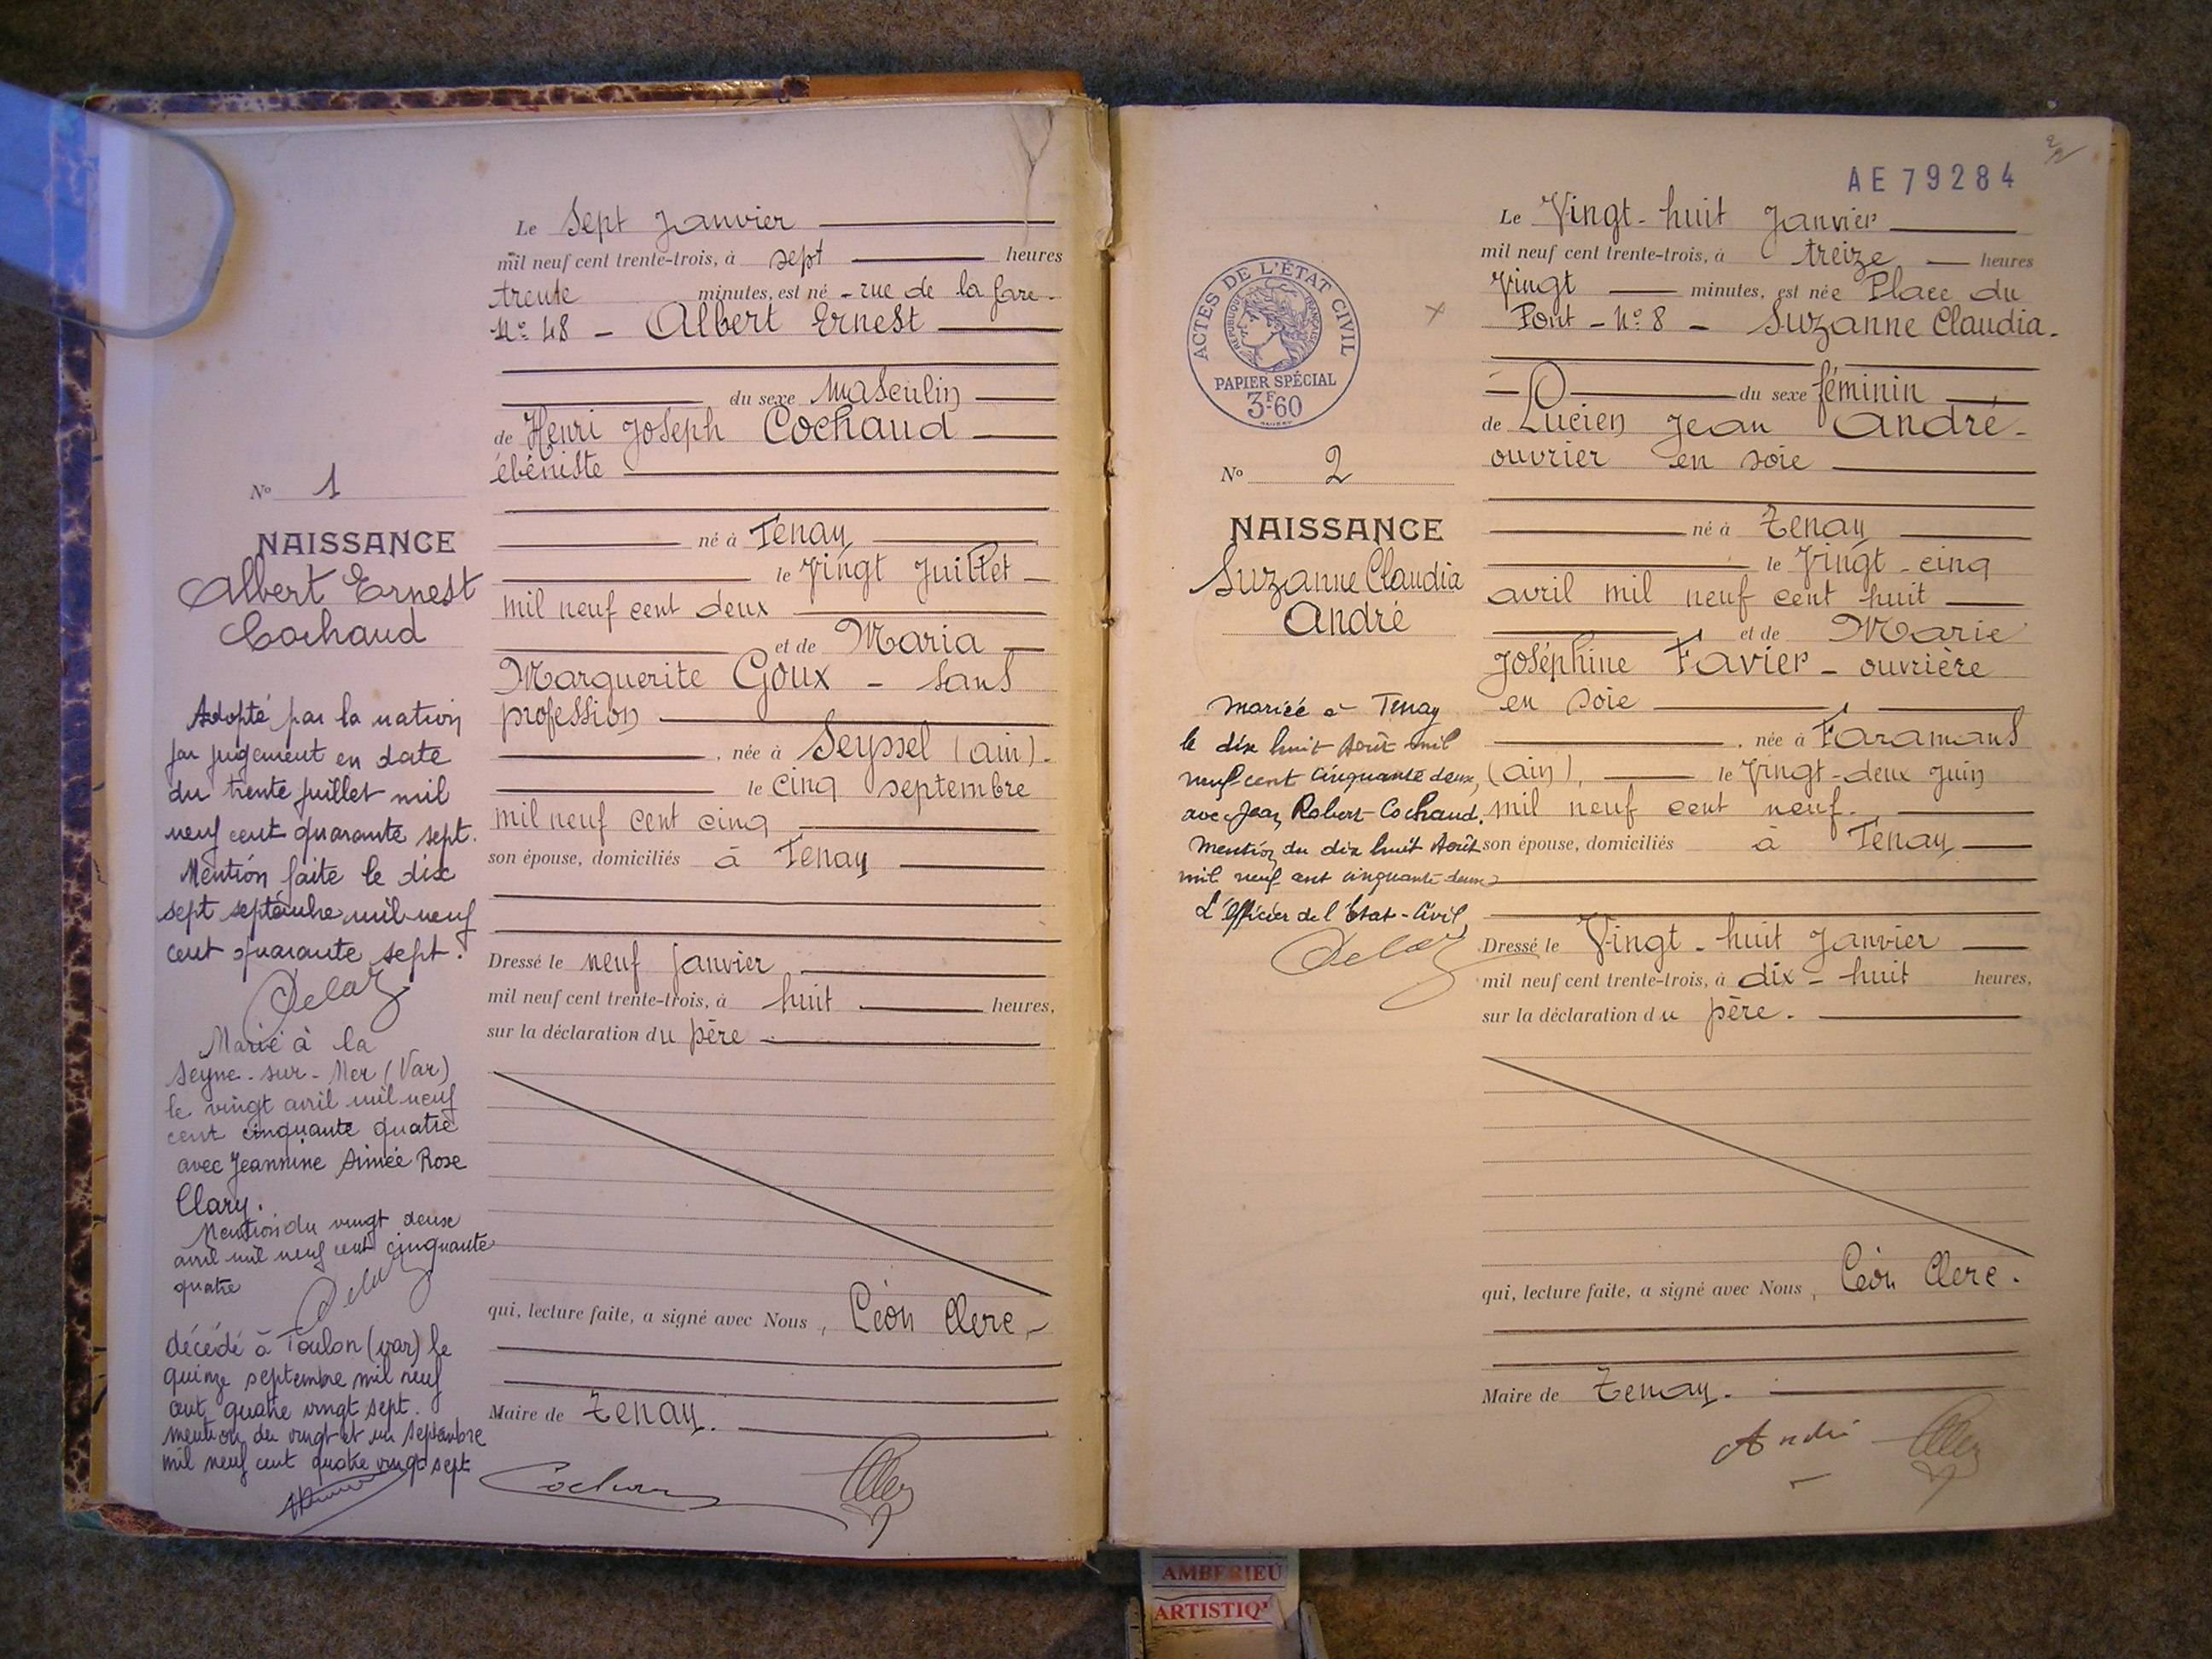 Le Sept Janvier
mil neuf cent trente-trois, à sept heures
trente minutes, est né - rue de la Gare -
N° 48 - Albert Ernest
du sexe masculin
de Henri Joseph Cochaud
ébéniste
né à Tenay
le Vingt Juillet
mil neuf cent deux
et de Maria
Marguerite Goux - sans
profession
, née à Seyssel (ain) -
le cinq septembre
mil neuf cent cinq
son épouse, domiciliés à Tenay
Dressé le neuf Janvier
mil neuf cent trente-trois, à huit heures,
sur la déclaration du père
qui, lecture faite, a signé avec Nous, Léon Clerc, -
Maire de Tenay.
N° 1
NAISSANCE
Albert Ernest
Cochaud
Adopté par la nation
par jugement en date
du trente juillet mil
neuf cent quarante sept.
Mention faite le dix
sept septembre mil neuf
cent quarante sept.
Marié à la
Seyne-sur-Mer (Var)
le vingt avril mil neuf
cent cinquante quatre
avec Jeannine Aimée Rose
Clary.
Mention du vingt deux
avril mil neuf cent cinquante
quatre
décédé à Toulon (var) le
quinze septembre mil neuf
cent quatre vingt sept.
mention du vingt et un septembre
mil neuf cent quatre vingt sept
AE 79284
Le Vingt-huit Janvier
mil neuf cent trente-trois, à treize heures
Vingt minutes, est née Place du
Pont - N° 8 - Suzanne Claudia -
du sexe féminin
de Lucien Jean André -
ouvrier en soie
né à Tenay
le Vingt-cinq
avril mil neuf cent huit
et de Marie
Joséphine Favier - ouvrière
en soie
, née à Faramans
(ain), le Vingt-deux Juin
mil neuf cent neuf.
son épouse, domiciliés à Tenay
Dressé le Vingt-huit Janvier
mil neuf cent trente-trois, à dix-huit heures,
sur la déclaration du père.
qui, lecture faite, a signé avec Nous, Léon Clerc.
Maire de Tenay.
André
ACTES DE L'ÉTAT CIVIL
RÉPUBLIQUE FRANÇAISE
PAPIER SPÉCIAL
3F60
N° 2
NAISSANCE
Suzanne Claudia
André
Mariée à Tenay
le dix huit Août mil
neuf cent cinquante deux,
avec Jean Robert Cochaud.
Mention du dix huit Août
mil neuf cent cinquante deux
L'Officier de l'Etat-Civil,
AMBERIEU
ARTISTIQ'